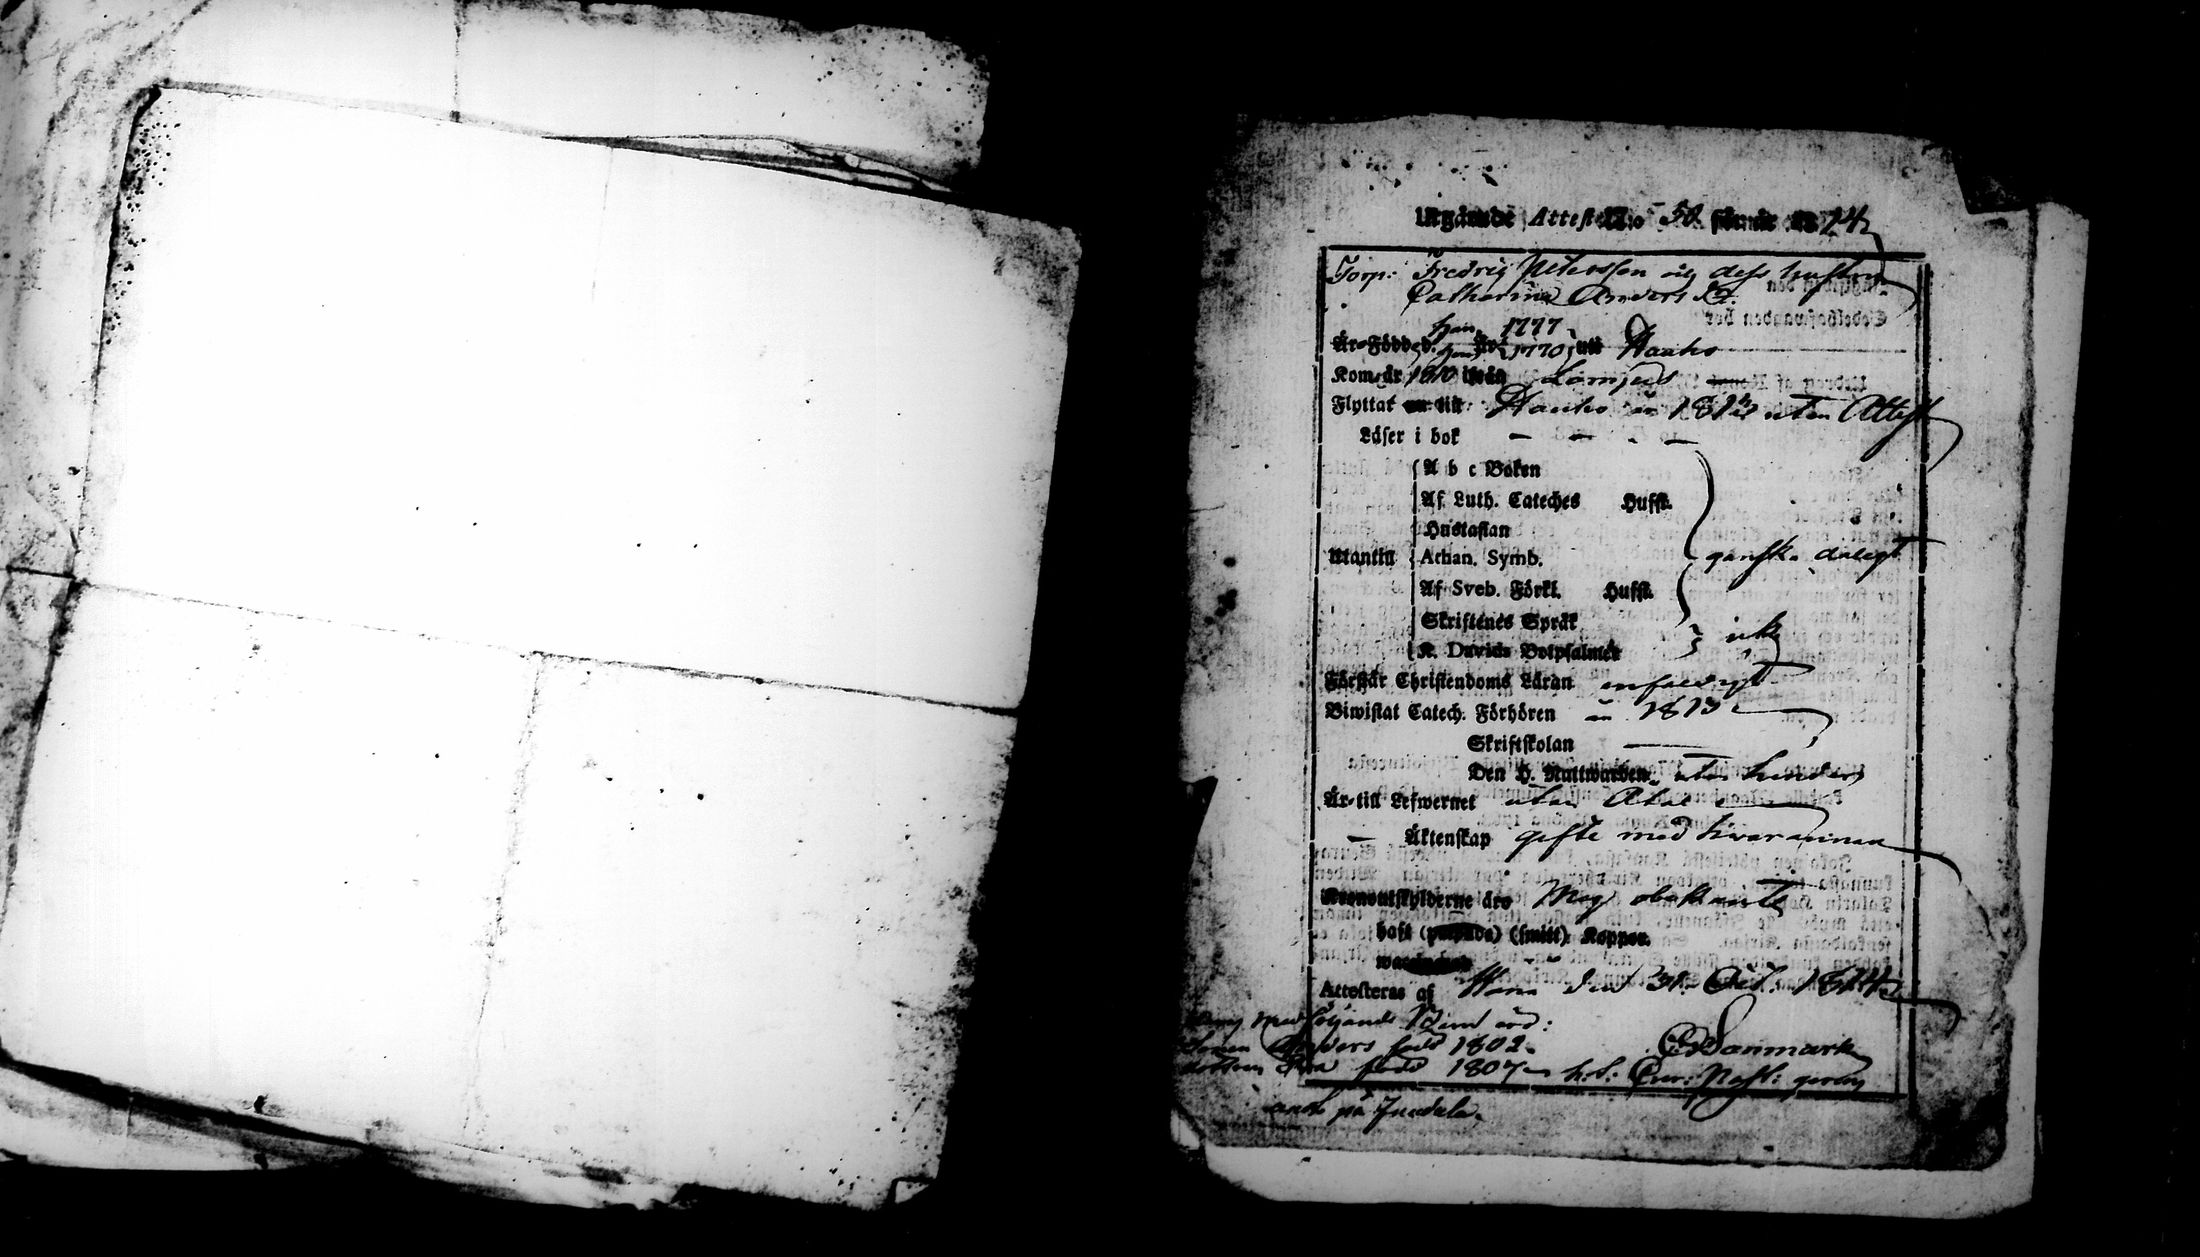 Utgående Attest N:o 50 för år 1814
Torp: Fredrig Petersson och dess hustru
Catharina Anders Dr.
han 1777
Är Född d. hon År 1770 uti Hauho
Kom år 1810 ifrån Lampis
Flyttat till Hauho år 1812 utan Attest
Läser i bok — — - —
A b c Boken
Af Luth. Cateches Hufst.
Hustaflan
Utantill Athan. Symb. ganska dåligt
Af Sveb. Förkl. Hufst.
Skriftenes Språk
K. Davids Botpsalmer icke
Förstår Christendoms Läran enfaldigt
Biwistat Catech. Förhören år 1813
Skriftskolan —
Den H. Nattwarden utan hinder
Är till Lefwernet utan
— Äktenskap gifte med hwarannan
Kronoutskylderne äro Mig obekante
haft (smitt) Koppor.
Attesteras af Wånå den 31 Oct. 1814
medföljande Barn äro:
Anders född 1802.
född 1807
CDanmark
på Juedela.